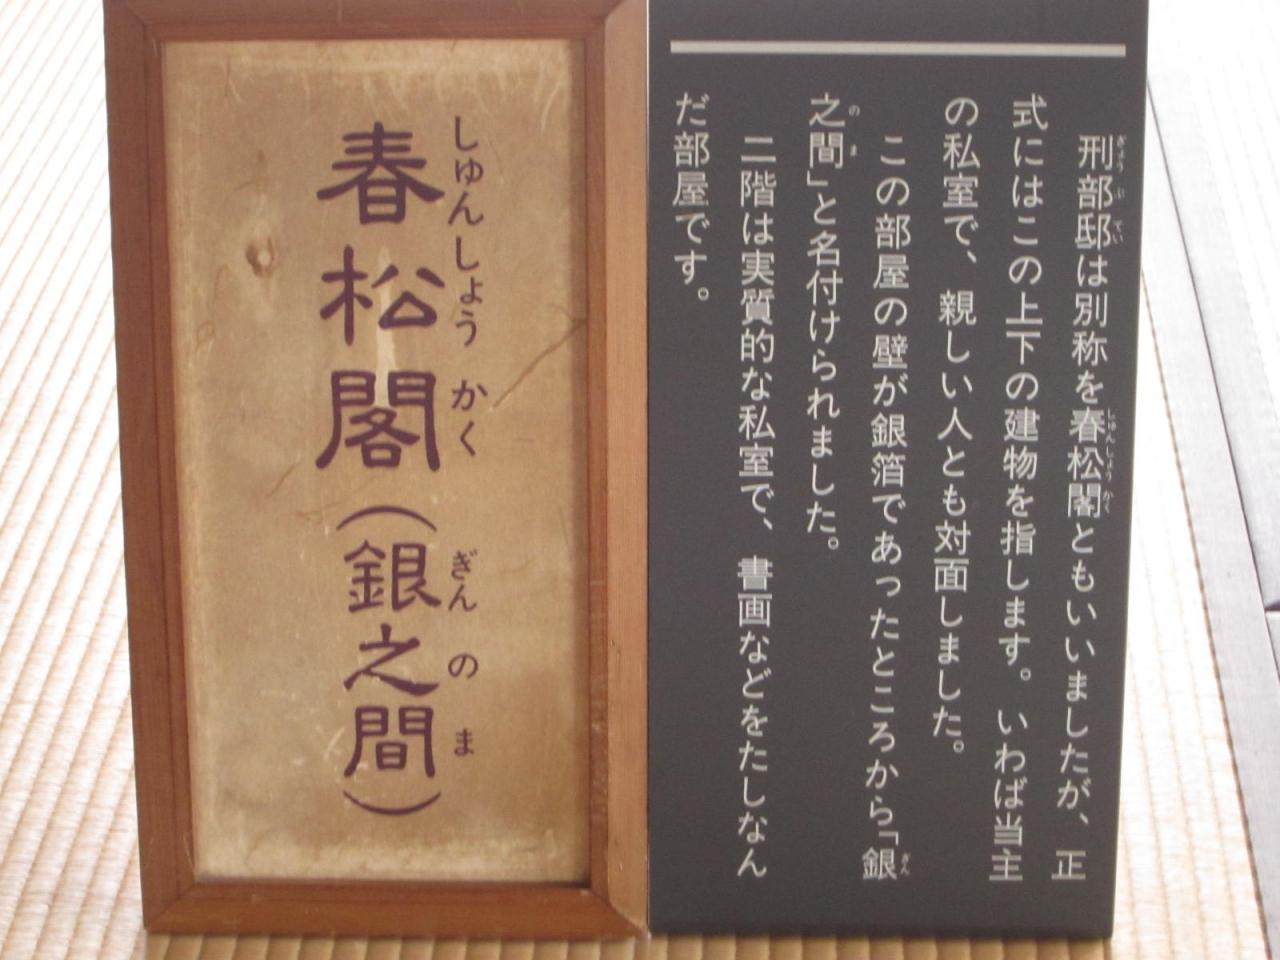 刑部邸は別称を春松閣ともいいましたが、正
式にはこの上下の建物を指します。いわば当主
の私室で、親しい人とも対面しました。
この部屋の壁が銀箔であったところから「銀
之間」と名付けられました。
二階は実質的な私室で、書画などをたしなん
だ部屋です。
しゅんしょうかく ぎんのま
春松閣(銀之間)